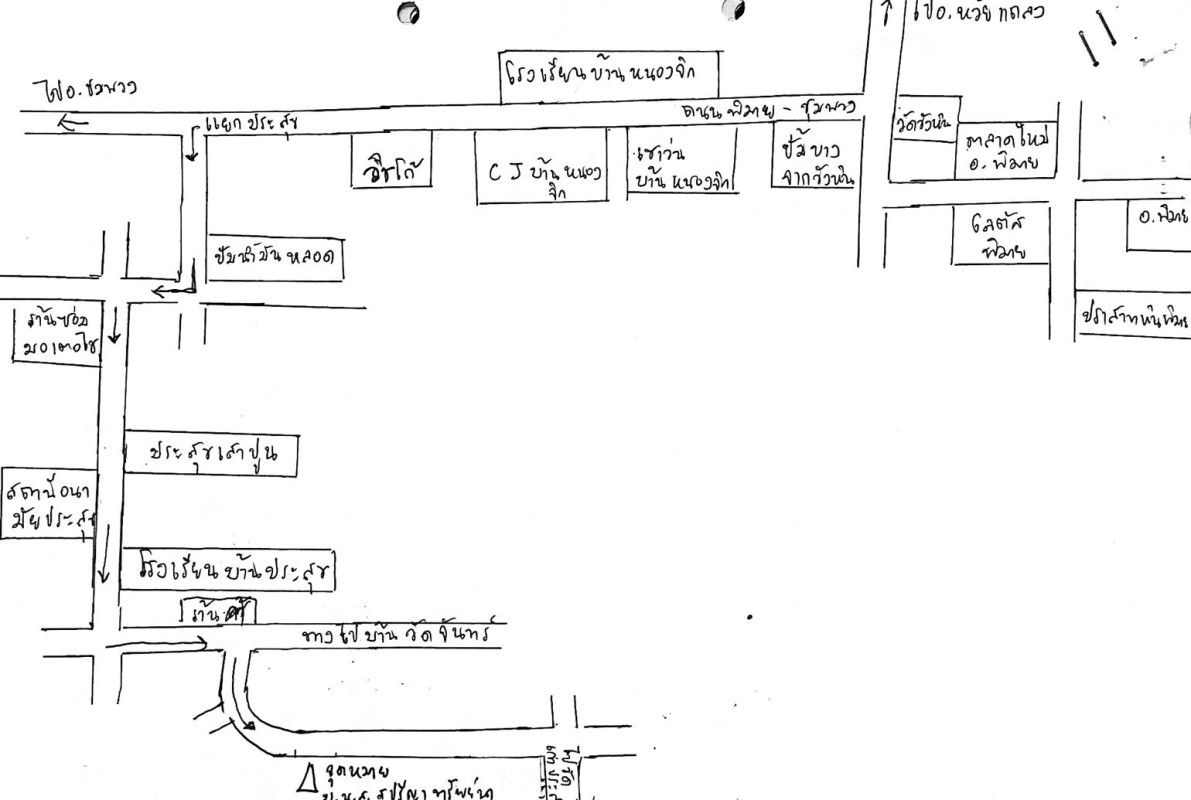 ไป อ. ห้วยแถลง
ไป อ. ชุมพวง
โรงเรียนบ้านหนองจิก
ถนน พิมาย - ชุมพวง
แยกประสุข
วัดวังหิน
ตลาดใหม่
อ. พิมาย
อีซูโก้
C J บ้านหนอง
จิก
เชาว่น
บ้านหนองจิก
ปั้มบาง
จากวังหิน
โลตัส
พิมาย
อ. พิมาย
ปั้มน้ำมันหลอด
ร้านซ่อม
มอเตอไซ
ปราสาทหินพิมาย
ประสุขเสาปูน
สถานีอนา
มัยประสุข
โรงเรียนบ้านประสุข
ร้าน
ทางไปบ้านวัดจันทร์
จุดหมาย